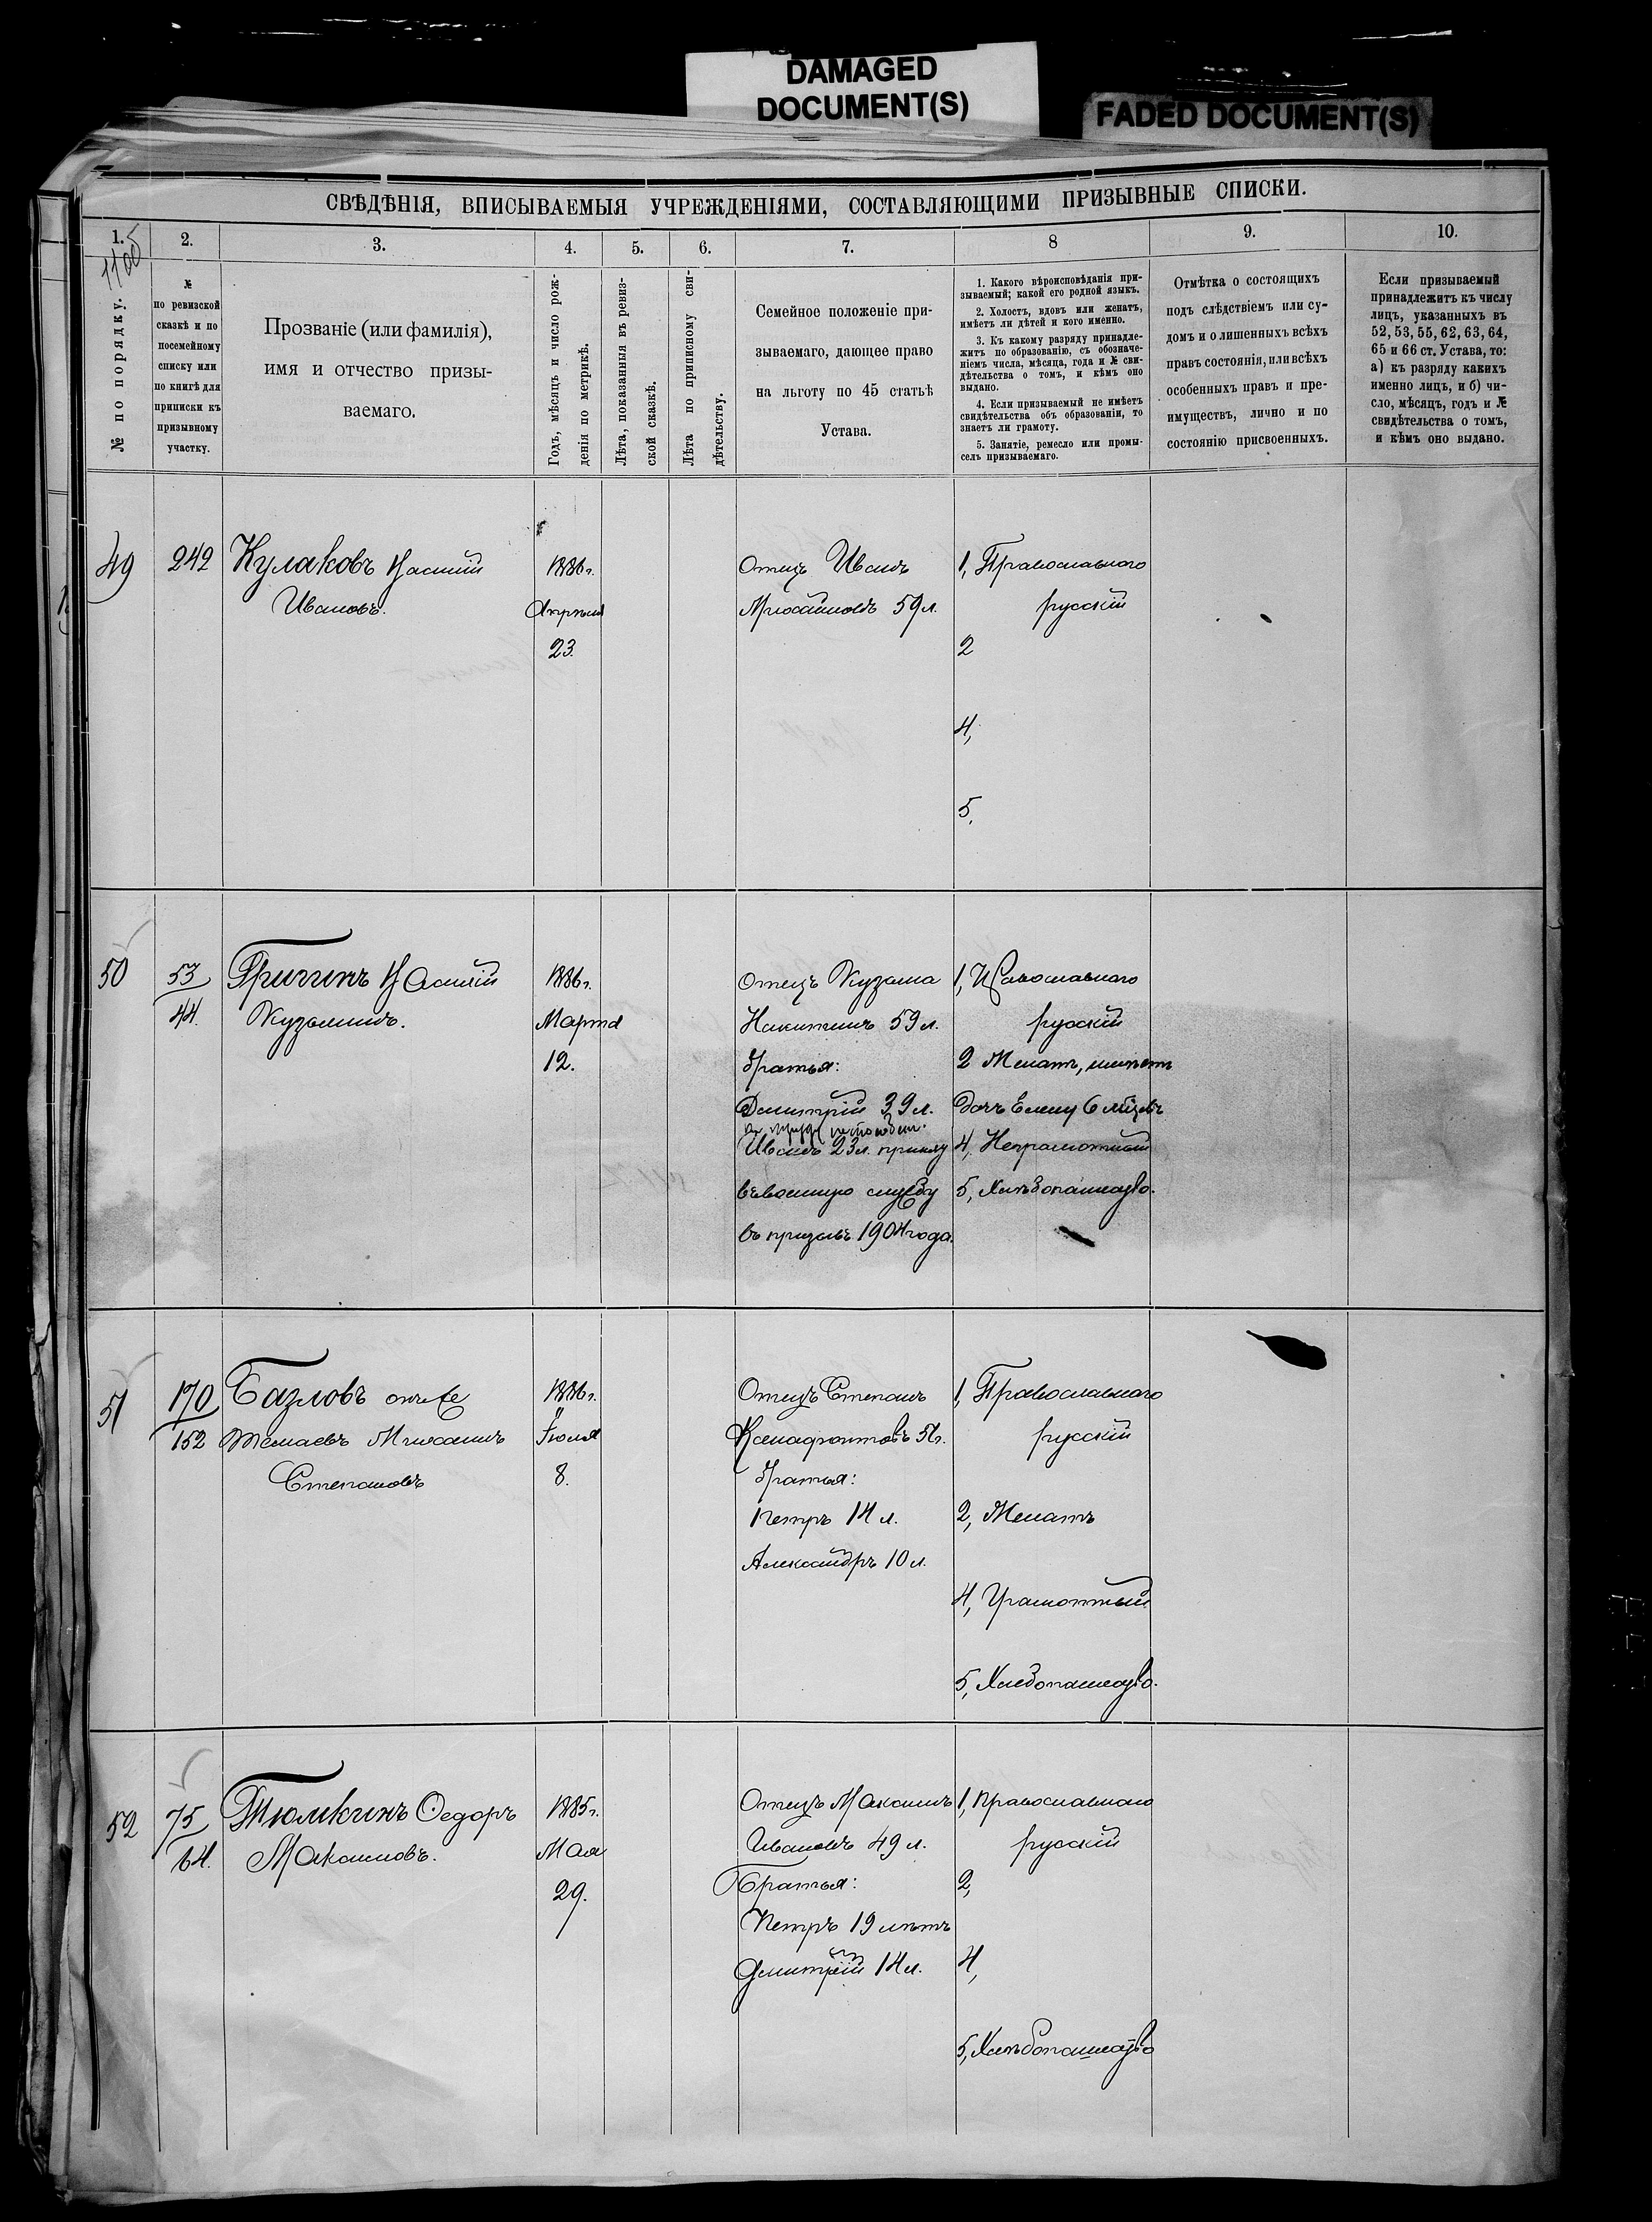 DAMAGED
DOCUMENT(S)
FADED DOCUMENT(S)
СВѢДѢНІЯ, ВПИСЫВАЕМЫЯ УЧРЕЖДЕНІЯМИ, СОСТАВЛЯЮЩИМИ ПРИЗЫВНЫЕ СПИСКИ.
1. 2. 3. 4. 5. 6. 7. 8 9. 10.
№ по порядку.
№
по ревизской
сказкѣ и по
посемейному
списку или
по книгѣ для
приписки къ
призывному
участку.
Прозваніе (или фамилія),
имя и отчество призы-
ваемаго.
Годъ, мѣсяцъ и число рож-
денія по метрикѣ.
Лѣта, показанныя въ ревиз-
ской сказкѣ.
Лѣта по приписному сви-
дѣтельству.
Семейное положеніе при-
зываемаго, дающее право
на льготу по 45 статьѣ
Устава.
1. Какого вѣроисповѣданія при-
зываемый; какой его родной языкъ.
2. Холостъ, вдовъ или женатъ,
имѣетъ ли дѣтей и кого именно.
3. Къ какому разряду принадле-
житъ по образованію, съ обозначе-
ніемъ числа, мѣсяца, года и № сви-
дѣтельства о томъ, и кѣмъ оно
выдано.
4. Если призываемый не имѣетъ
свидѣтельства объ образованіи, то
знаетъ ли грамоту.
5. Занятіе, ремесло или промы-
селъ призываемаго.
Отмѣтка о состоящихъ
подъ слѣдствіемъ или су-
домъ и о лишенныхъ всѣхъ
правъ состоянія, или всѣхъ
особенныхъ правъ и пре-
имуществъ, лично и по
состоянію присвоенныхъ.
Если призываемый
принадлежитъ къ числу
лицъ, указанныхъ въ
52, 53, 55, 62, 63, 64,
65 и 66 ст. Устава, то:
а) къ разряду какихъ
именно лицъ, и б) чи-
сло, мѣсяцъ, годъ и №
свидѣтельства о томъ,
и кѣмъ оно выдано.
49
242
Кулаковъ Василій
Ивановъ.
1886 г.
Апрѣля
23.
Отецъ Иванъ
59 л.
1, Православнаго
русскій
2
4,
5,
50
53
44.
Гричинъ Василій
Кузьминъ.
1886 г.
Марта
12.
Отецъ Кузьма
Никитинъ 59 л.
Братья:
Дмитрій 39 л.
Иванъ 23 л. принятъ
въ военную службу
въ призывъ 1904 года.
1, Православнаго
русскій
2 Женатъ, имѣетъ
дочь Елену 6 мѣсяцъ
4, Неграмотный
5, Хлѣбопашество.
51
170
152
Базловъ онъ же
Михаилъ
Степановъ
1886 г.
Іюля
8.
Отецъ Степанъ
Ксенофонтовъ
Братья:
Петръ 14 л.
Александръ 10 л.
1, Православнаго
русскій
2, Женатъ
4, Грамотный
5, Хлебопашество.
52
75
64.
Тюмкинъ Ѳедоръ
Максимовъ.
1885 г.
Мая
29.
Отецъ Максимъ
Ивановъ 49 л.
Братья:
Петръ 19 лѣтъ
Дмитрій 14 л.
1, Православнаго
русскій
2,
4,
5, Хлѣбопашество